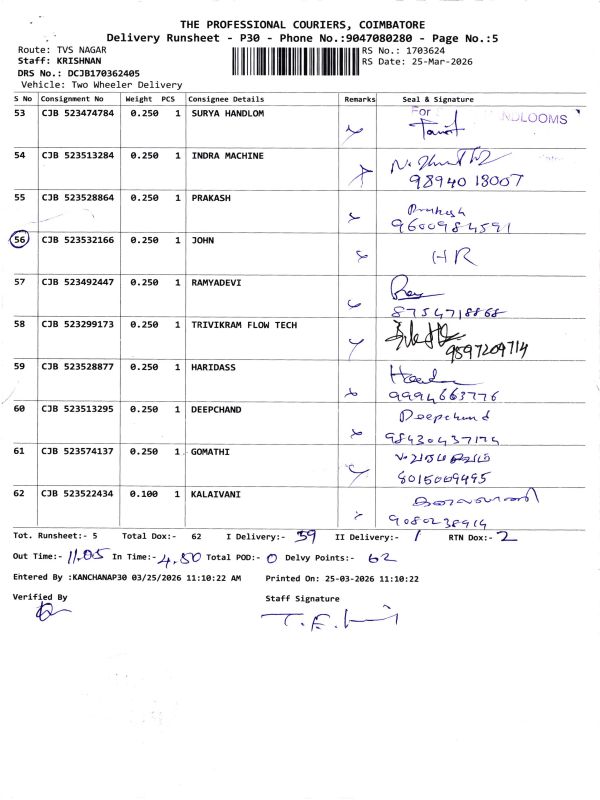 THE PROFESSIONAL COURIERS, COIMBATORE
Delivery Runsheet - P30 - Phone No.:9047080280 - Page No.:5
Route: TVS NAGAR RS No.: 1703624
Staff: KRISHNAN RS Date: 25-Mar-2026
DRS No.: DCJB170362405
Vehicle: Two Wheeler Delivery
S No Consignment No Weight PCS Consignee Details Remarks Seal & Signature
53 CJB 523474784 0.250 1 SURYA HANDLOM For NDLOOMS
54 CJB 523513284 0.250 1 INDRA MACHINE
98940 18007
55 CJB 523528864 0.250 1 PRAKASH Prakash
9600984591
56 CJB 523532166 0.250 1 JOHN HR
57 CJB 523492447 0.250 1 RAMYADEVI
8754718868
58 CJB 523299173 0.250 1 TRIVIKRAM FLOW TECH
9597209714
59 CJB 523528877 0.250 1 HARIDASS
9994663776
60 CJB 523513295 0.250 1 DEEPCHAND Deepchand
98430437174
61 CJB 523574137 0.250 1 GOMATHI
8015009495
62 CJB 523522434 0.100 1 KALAIVANI கலைவாணி
9080238914
Tot. Runsheet:- 5 Total Dox:- 62 I Delivery:- 59 II Delivery:- 1 RTN Dox:- 2
Out Time:- 11.05 In Time:- 4.50 Total POD:- 0 Delvy Points:- 62
Entered By :KANCHANAP30 03/25/2026 11:10:22 AM Printed On: 25-03-2026 11:10:22
Verified By Staff Signature